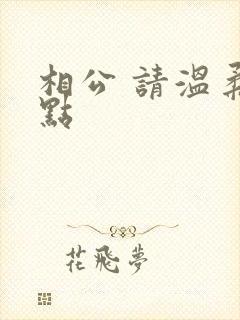 相公 請溫柔
點
花飛夢